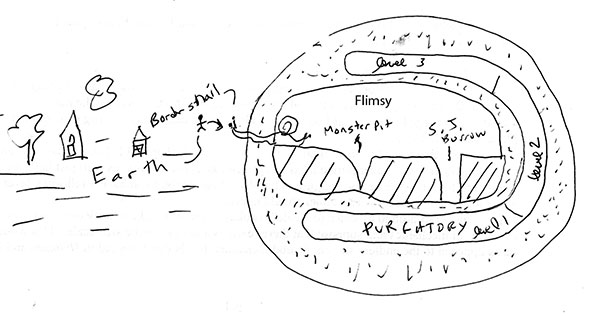 level 3
Flimsy
Bordersnail
Monster Pit
S.J.
Burrow
level 2
Earth
PURGATORY level 1